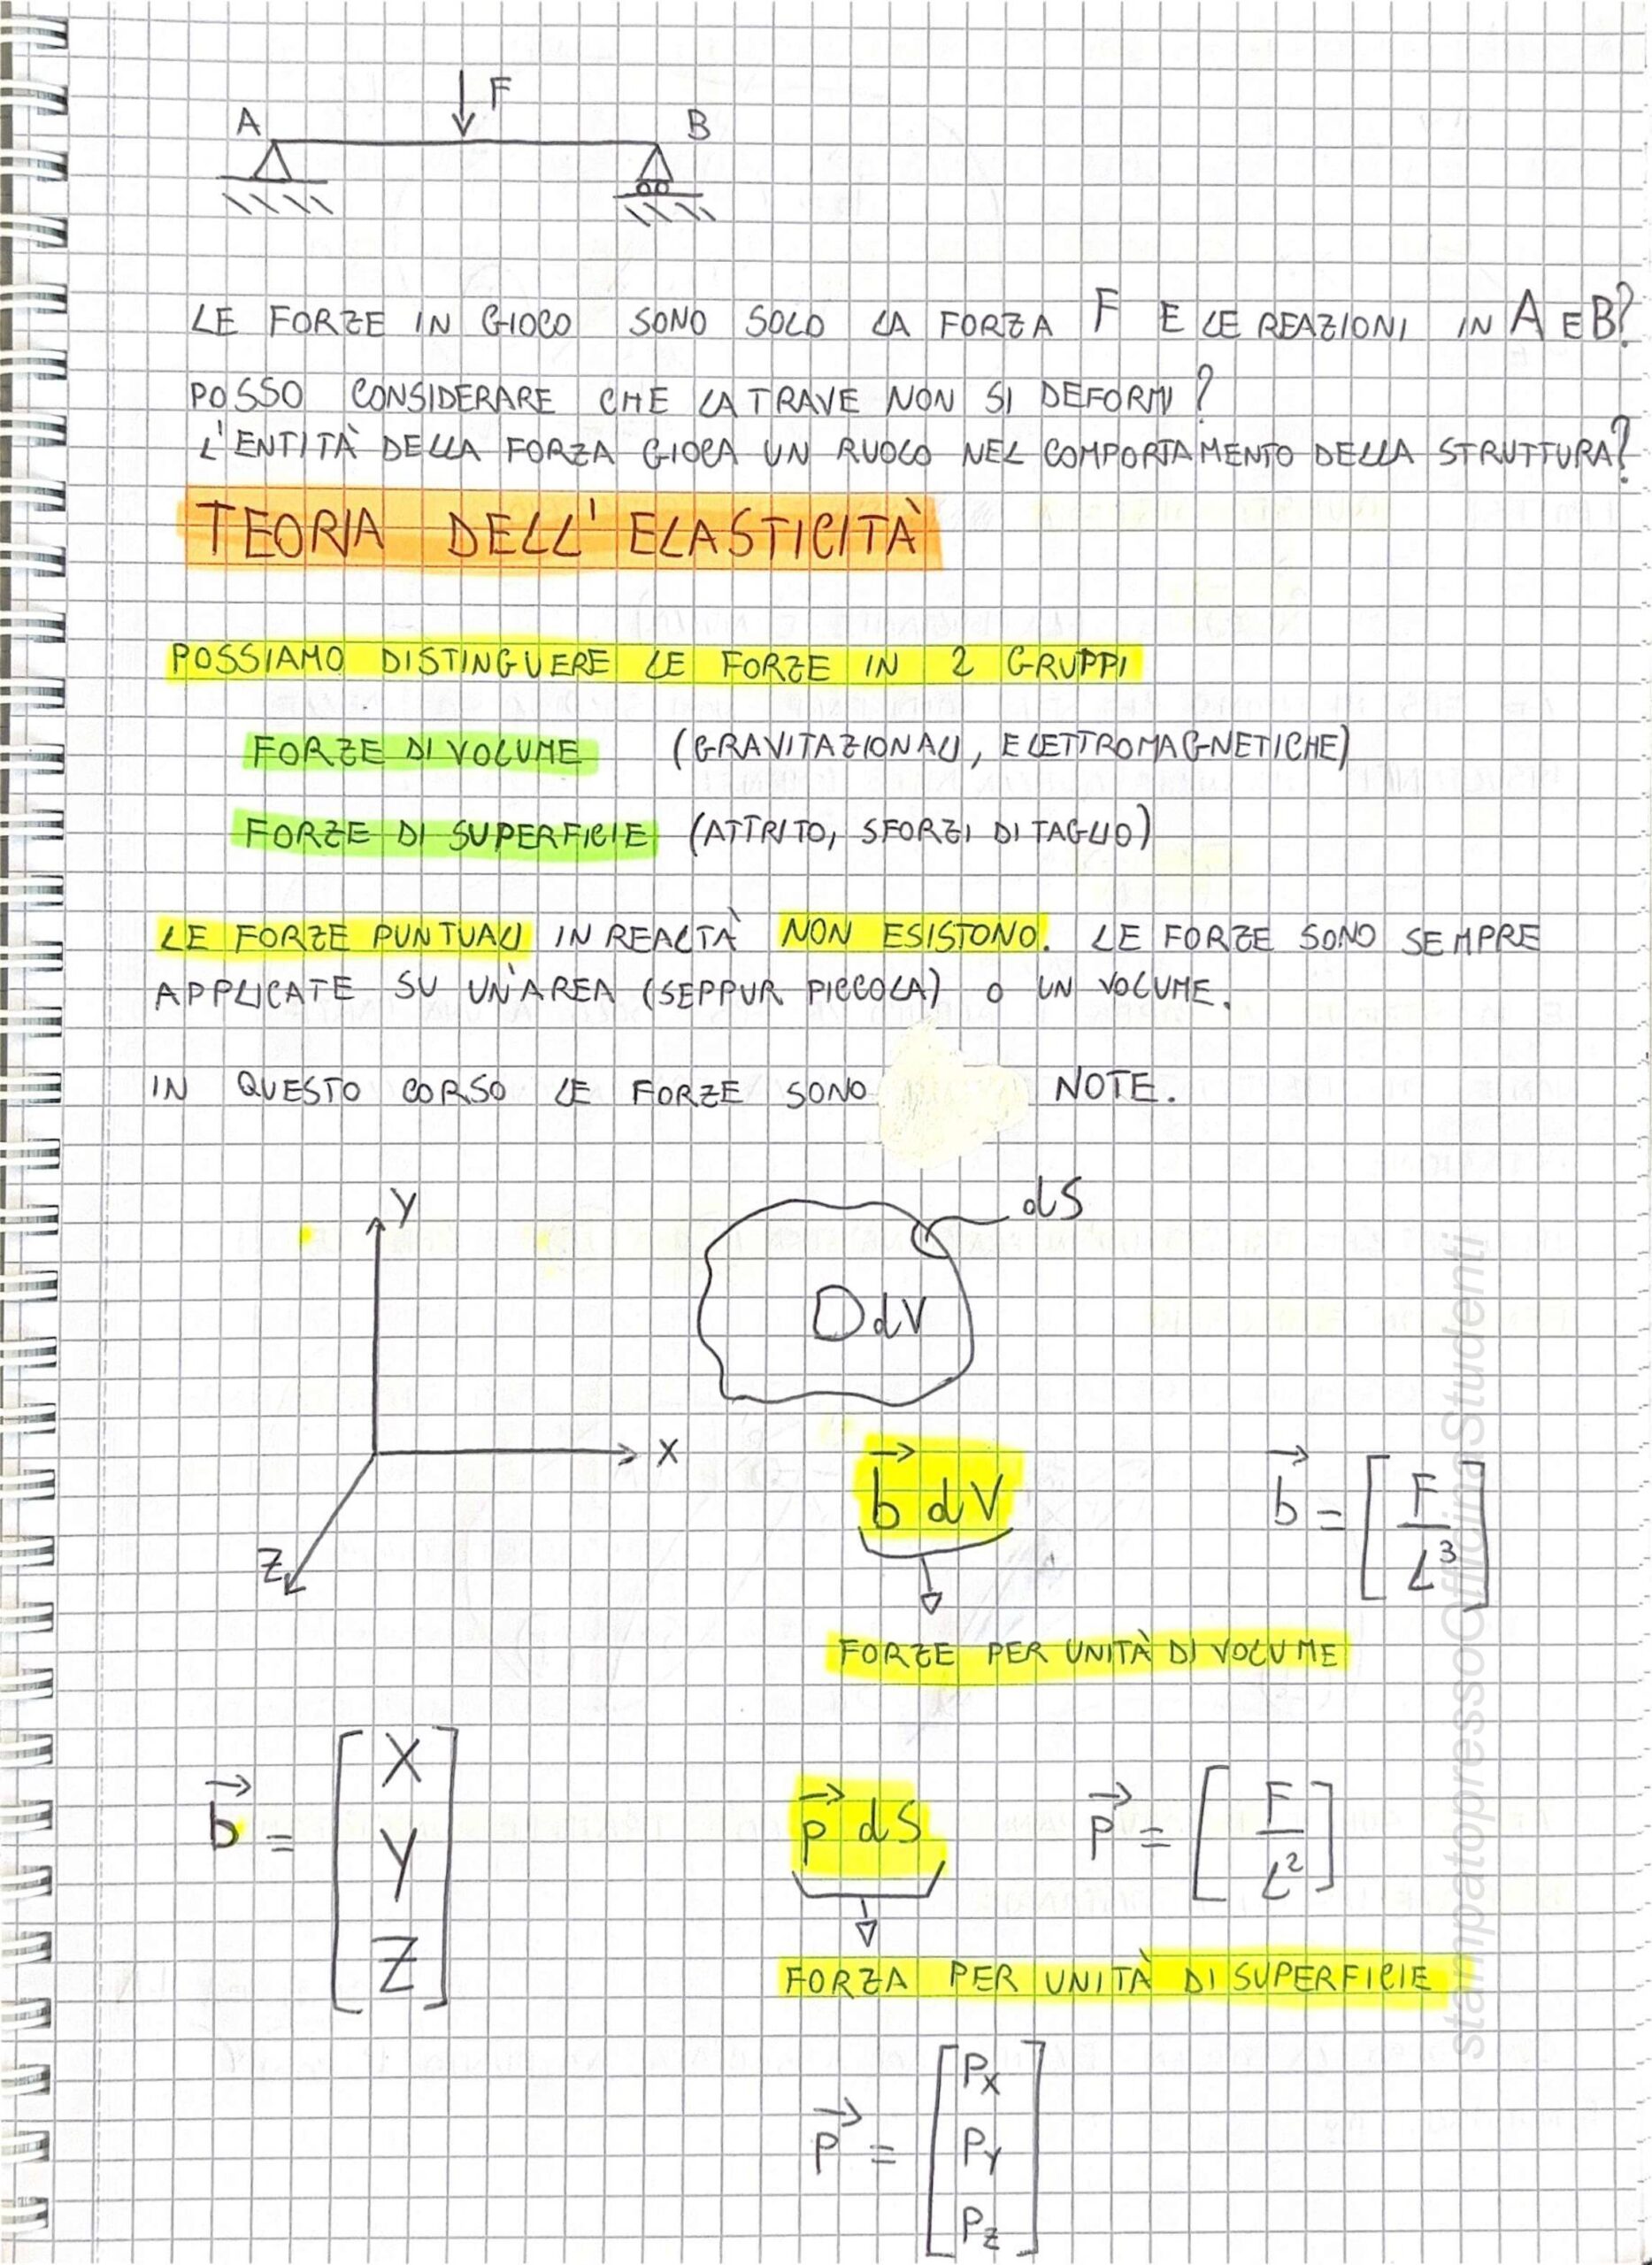 F
A B
LE FORZE IN GIOCO SONO SOLO LA FORZA F E LE REAZIONI IN A E B?
POSSO CONSIDERARE CHE LA TRAVE NON SI DEFORMI?
L'ENTITÀ DELLA FORZA GIOCA UN RUOLO NEL COMPORTAMENTO DELLA STRUTTURA?
TEORIA DELL'ELASTICITÀ
POSSIAMO DISTINGUERE LE FORZE IN 2 GRUPPI
FORZE DI VOLUME (GRAVITAZIONALI, ELETTROMAGNETICHE)
FORZE DI SUPERFICIE (ATTRITO, SFORZI DI TAGLIO)
LE FORZE PUNTUALI IN REALTÀ NON ESISTONO. LE FORZE SONO SEMPRE
APPLICATE SU UN'AREA (SEPPUR PICCOLA) O UN VOLUME.
IN QUESTO CORSO LE FORZE SONO NOTE.
Y
dS
dV
X
Z
b⃗ dV
b⃗ = [F/L³]
FORZE PER UNITÀ DI VOLUME
b⃗ = [X Y Z]
p⃗ dS
p⃗ = [F/L²]
FORZA PER UNITÀ DI SUPERFICIE
p⃗ = [Px PY Pz]
stampatopressoOfficinaStudenti